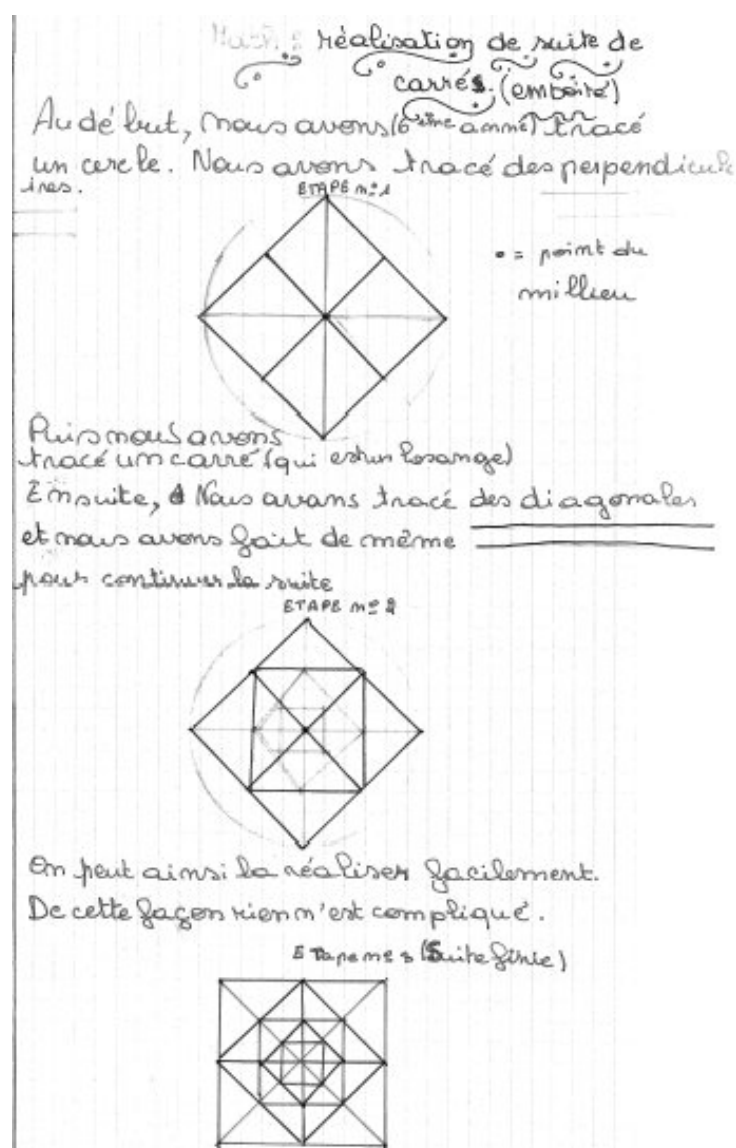 Math : réalisation de suite de
carrés. (emboité)
Au début, nous avons (6ième anné) tracé
un cercle. Nous avons tracé des perpendicula
ires.
ETAPE n°1
• = point du
millieu
Puis nous avons
tracé un carré (qui est un losange)
Ensuite, Nous avans tracé des diagonales
et nous avons fait de même
pour continuer la suite
ETAPE n° 2
On peut ainsi la réaliser facilement.
De cette façon rien n'est compliqué.
Etape n° 3 (Suite finie)